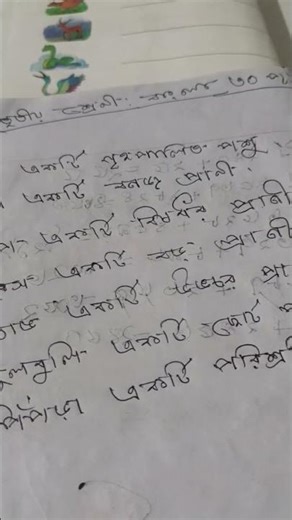 তৃতীয় শ্রেণী: বাংলা ৩০ পৃ
একটি গৃহপালিত পশু
একটি বন্য প্রাণী
একটি বিষধর প্রাণী
একটি বন্য প্রাণী
একটি উভচর প্রা
বুলবুলি- একটি ছোট
পিঁপড়া একটি পরিশ্র